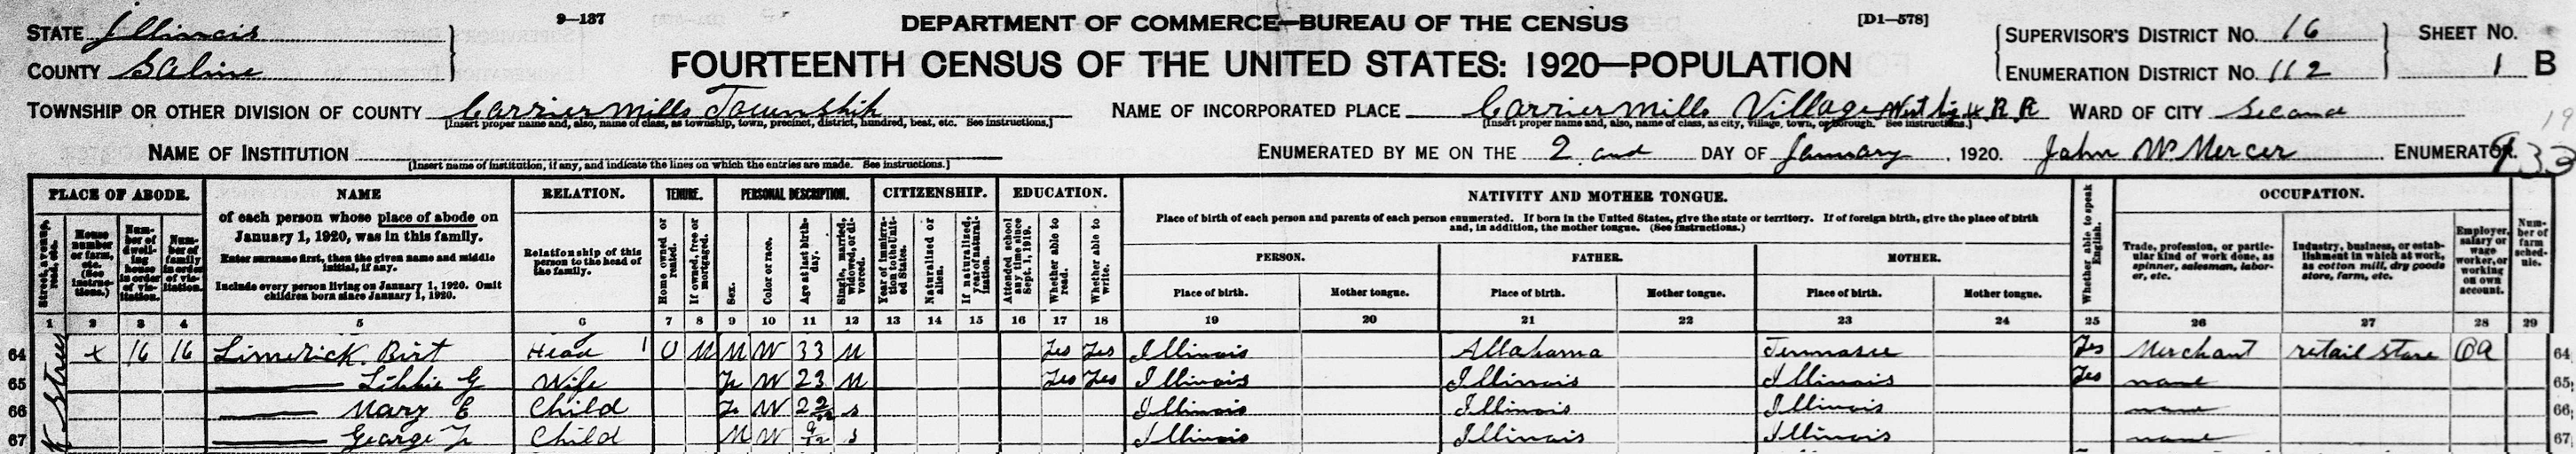 9—137
DEPARTMENT OF COMMERCE—BUREAU OF THE CENSUS
[D1—578]
FOURTEENTH CENSUS OF THE UNITED STATES: 1920—POPULATION
STATE Illinois
COUNTY Saline
SUPERVISOR'S DISTRICT NO. 16
ENUMERATION DISTRICT NO. 112
SHEET NO.
1 B
TOWNSHIP OR OTHER DIVISION OF COUNTY Carrier Mills Township
[Insert proper name and, also, name of class, as township, town, precinct, district, hundred, beat, etc. See instructions.]
NAME OF INCORPORATED PLACE Carrier Mills Village R R
[Insert proper name and, also, name of class, as city, village, town, or borough. See instructions.]
WARD OF CITY Second
NAME OF INSTITUTION
[Insert name of institution, if any, and indicate the lines on which the entries are made. See instructions.]
ENUMERATED BY ME ON THE 2 and DAY OF January, 1920. John W Mercer ENUMERATOR.
PLACE OF ABODE.
Street, avenue, road, etc.
House number or farm, etc. (See instructions.)
Number of dwelling house in order of visitation.
Number of family in order of visitation.
NAME
of each person whose place of abode on
January 1, 1920, was in this family.
Enter surname first, then the given name and middle
initial, if any.
Include every person living on January 1, 1920. Omit
children born since January 1, 1920.
RELATION.
Relationship of this
person to the head of
the family.
TENURE.
Home owned or rented.
If owned, free or mortgaged.
PERSONAL DESCRIPTION.
Sex.
Color or race.
Age at last birthday.
Single, married, widowed, or divorced.
CITIZENSHIP.
Year of immigration to the United States.
Naturalized or alien.
If naturalized, year of naturalization.
EDUCATION.
Attended school any time since Sept. 1, 1919.
Whether able to read.
Whether able to write.
NATIVITY AND MOTHER TONGUE.
Place of birth of each person and parents of each person enumerated. If born in the United States, give the state or territory. If of foreign birth, give the place of birth
and, in addition, the mother tongue. (See instructions.)
PERSON.
Place of birth.
Mother tongue.
FATHER.
Place of birth.
Mother tongue.
MOTHER.
Place of birth.
Mother tongue.
Whether able to speak English.
OCCUPATION.
Trade, profession, or particular kind of work done, as spinner, salesman, laborer, etc.
Industry, business, or establishment in which at work, as cotton mill, dry goods store, farm, etc.
Employer, salary or wage worker, or working on own account.
Number of farm schedule.
1 2 3 4 5 6 7 8 9 10 11 12 13 14 15 16 17 18 19 20 21 22 23 24 25 26 27 28 29
64 x 16 16 Limerick Birt Head 1 O M M W 33 M Yes Yes Illinois Allabama Tennasee Yes Merchant retail store OA 64
65 — Libbie G Wife Fe W 23 M Yes Yes Illinois Illinois Illinois Yes none 65
66 — Mary E Child Fe W 2 2/12 s Illinois Illinois Illinois none 66
67 — George F Child M W 9/12 s Illinois Illinois Illinois none 67